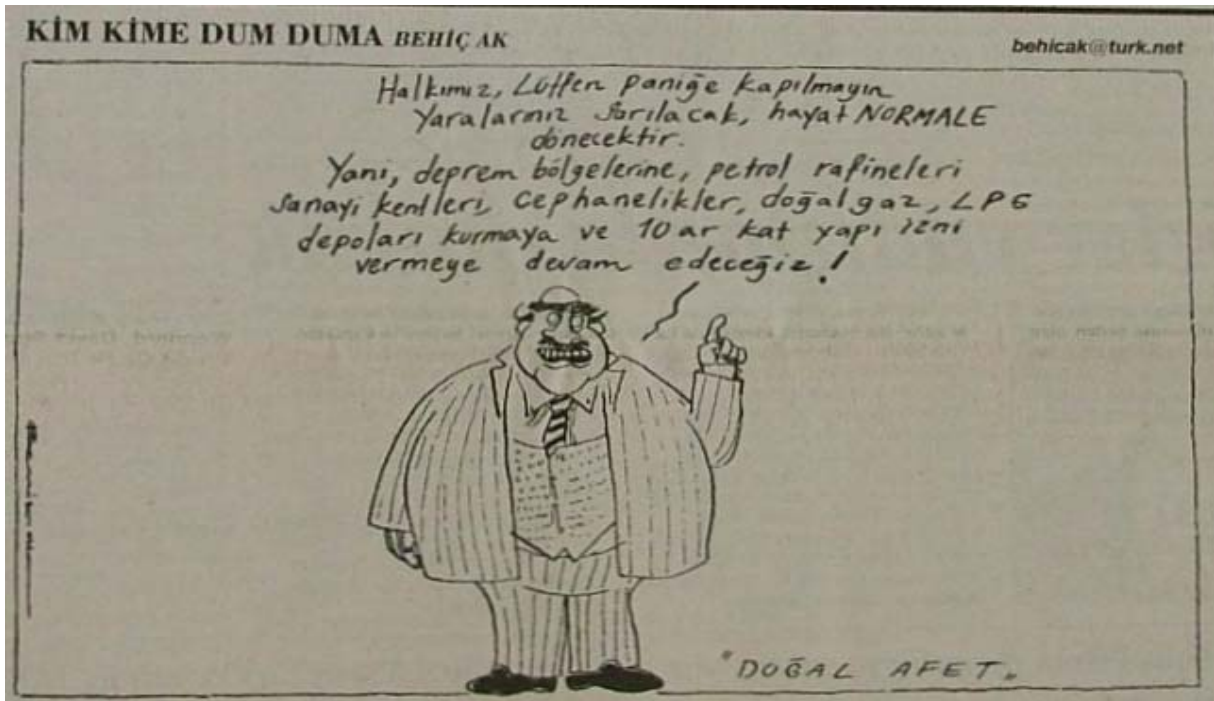 KİM KİME DUM DUMA BEHİÇ AK
behicak@turk.net
Halkımız, Lütfen paniğe kapılmayın
Yaralarınız sarılacak, hayat NORMALE
dönecektir.
Yani, deprem bölgelerine, petrol rafineleri
sanayi kentleri, cephanelikler, doğalgaz, LPG
depoları kurmaya ve 10 ar kat yapı izni
vermeye devam edeceğiz!
"DOĞAL AFET"